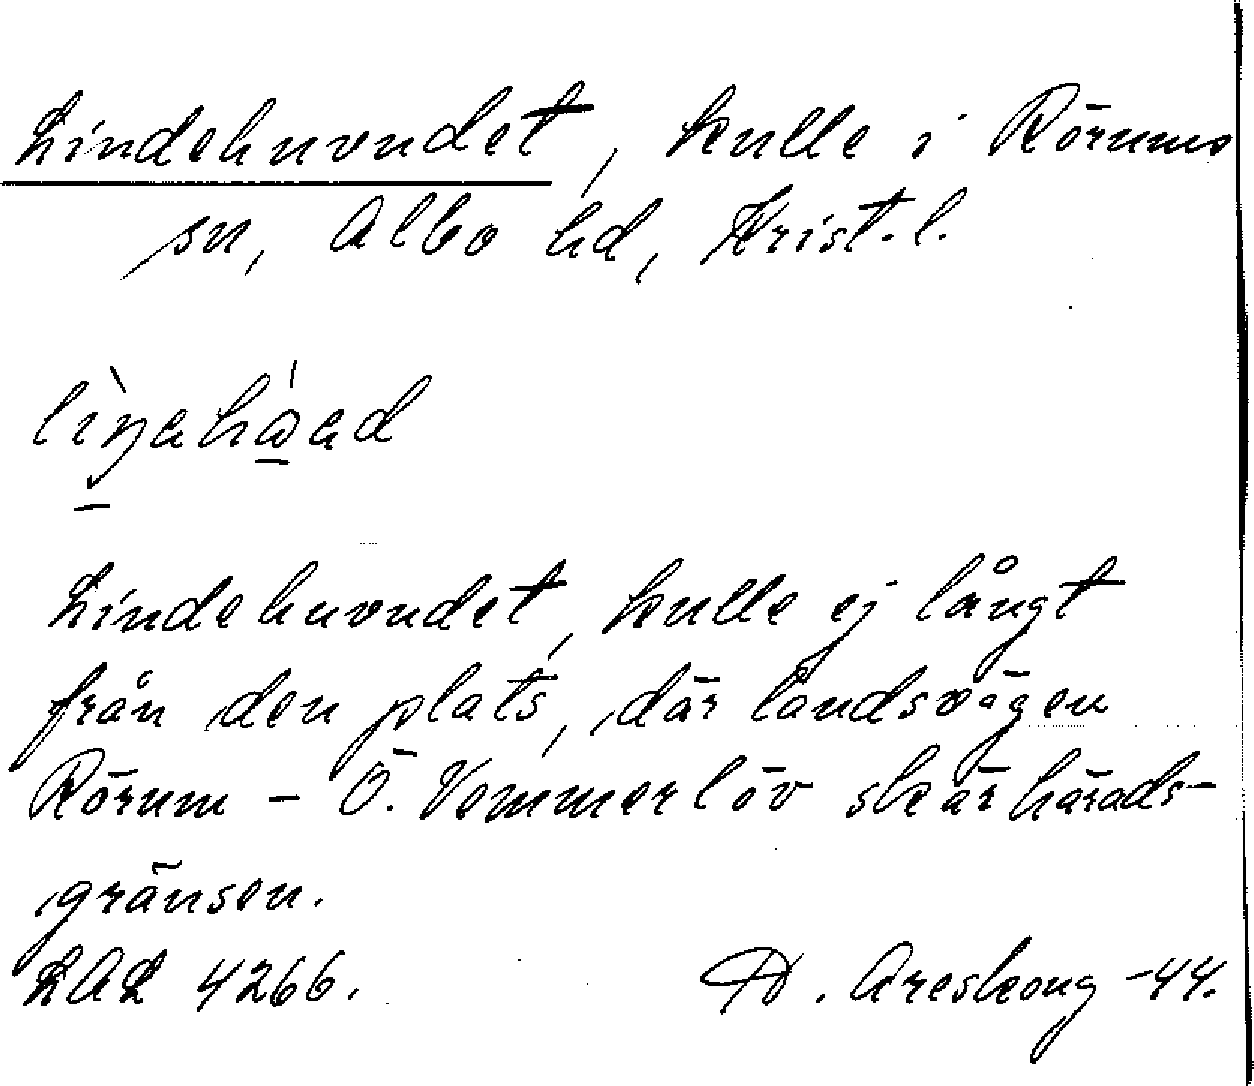 Lindehuvudet, kulle i Rörums
sn, Albo hd, Krist. l.
Lindehuvudet, kulle ej långt
från den plats, där landsvägen
Rörum - Ö. Vemmerlöv skär härads-
gränsen.
LAL 4266. D. Areskoug -44.